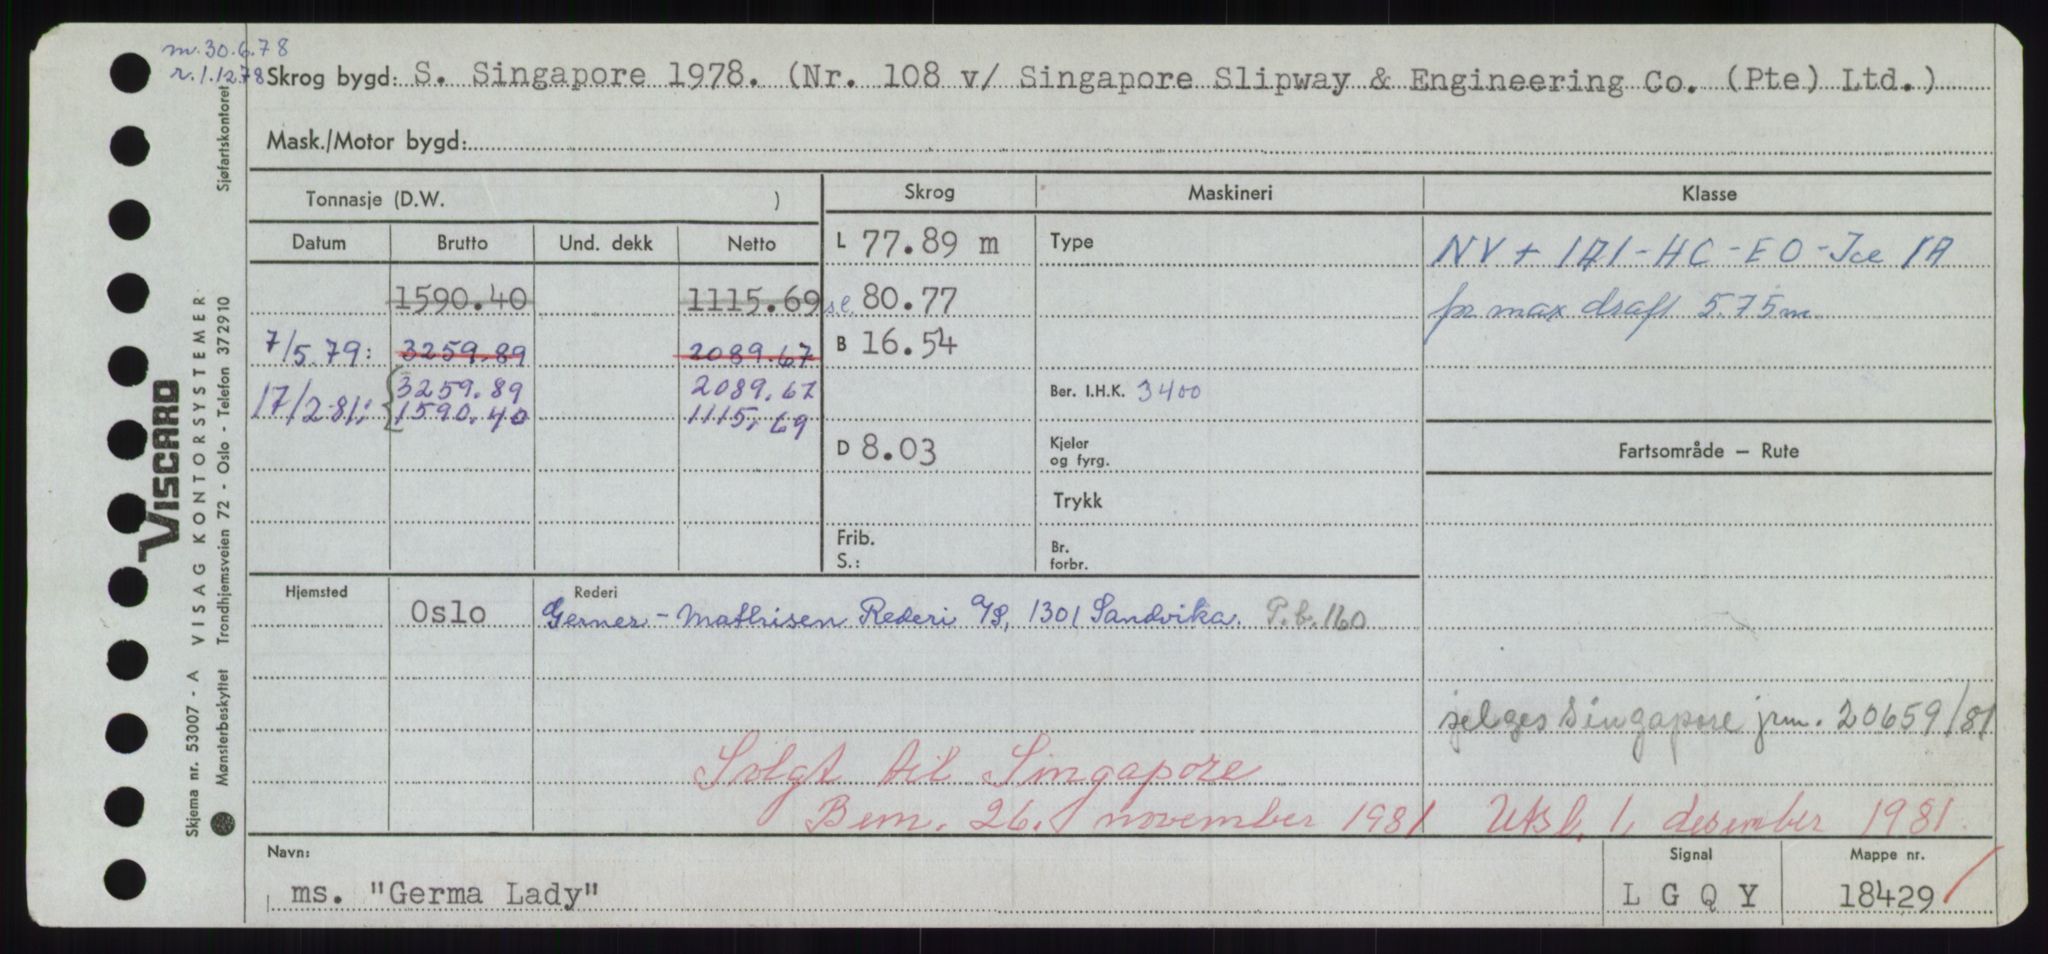 m. 30.6.78
r. 1.1278
Skrog bygd: S. Singapore 1978. (Nr. 108 v/ Singapore Slipway & Engineering Co. (Pte) Ltd.)
Mask./Motor bygd:
Tonnasje (D.W. )
Skrog
Maskineri
Klasse
Datum
Brutto
Und. dekk
Netto
1590.40 1115.69
7/5.79: 3259.89 2089.67
17/2-81: 3259.89 2089.67
1590.40 1115.69
L 77.89 m
sl. 80.77
B 16.54
D 8.03
Frib.
S.:
Type
Ber. I.H.K. 3400
Kjeler
og fyrg.
Trykk
Br.
forbr.
NV + 1A1 - HC - EO - Ice 1A
for max draft 5.75m
Fartsområde — Rute
Hjemsted
Oslo
Rederi
Gerner-Mathisen Rederi A/S, 1301 Sandvika. P.b. 160
selges Singapore jrn. 20659/81
Solgt til Singapore
Bem. 26. november 1981 Utsl. 1. desember 1981.
Navn:
ms. "Germa Lady"
Signal
L G Q Y
Mappe nr.
18429
VISCARD
Skjema nr. 53007 - A VISAG KONTORSYSTEMER
Mønsterbeskyttet Trondhjemsveien 72 - Oslo - Telefon 372910 Sjøfartskontoret